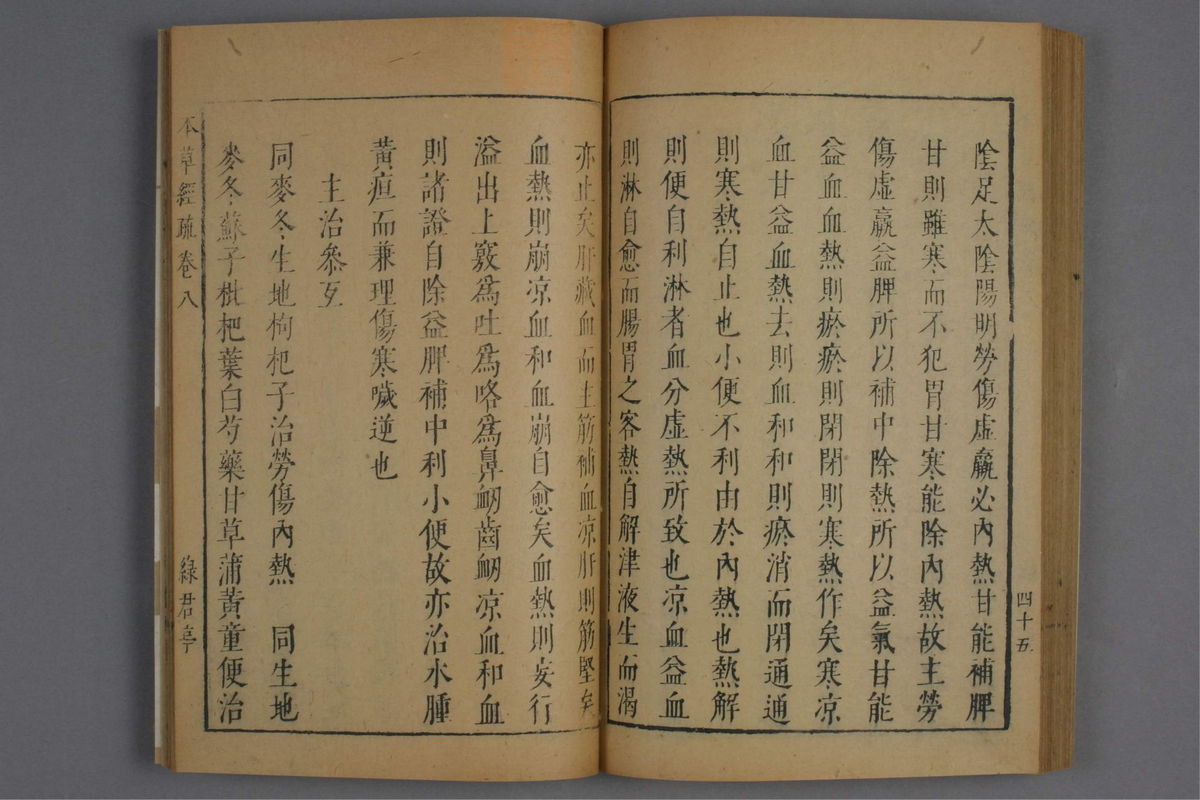 四十五
陰足太陰陽明勞傷虛羸必內熱甘能補脾
甘則雖寒而不犯胃甘寒能除內熱故主勞
傷虛羸益脾所以補中除熱所以益氣甘能
益血血熱則瘀瘀則閉閉則寒熱作矣寒凉
血甘益血熱去則血和和則瘀消而閉通通
則寒熱自止也小便不利由於內熱也熱解
則便自利淋者血分虛熱所致也凉血益血
則淋自愈而腸胃之客熱自解津液生而渴
亦止矣肝藏血而主筋補血凉肝則筋堅矣
血熱則崩凉血和血崩自愈矣血熱則妄行
溢出上竅為吐為咯為鼻衂齒衂凉血和血
則諸證自除益脾補中利小便故亦治水腫
黃疸而兼理傷寒噦逆也
主治叅互
同麥冬生地枸杞子治勞傷內熱　同生地
麥冬蘇子枇杷葉白芍藥甘草蒲黃童便治
本草經疏卷八
綠君亭